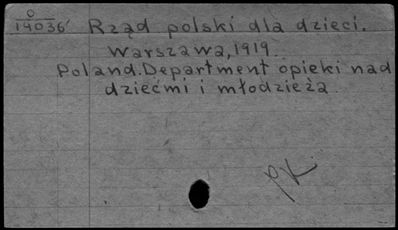 O
14036 Rząd polski dla dzieci.
Warszawa, 1919.
Poland. Department opieki nad
dziećmi i młodzieża.